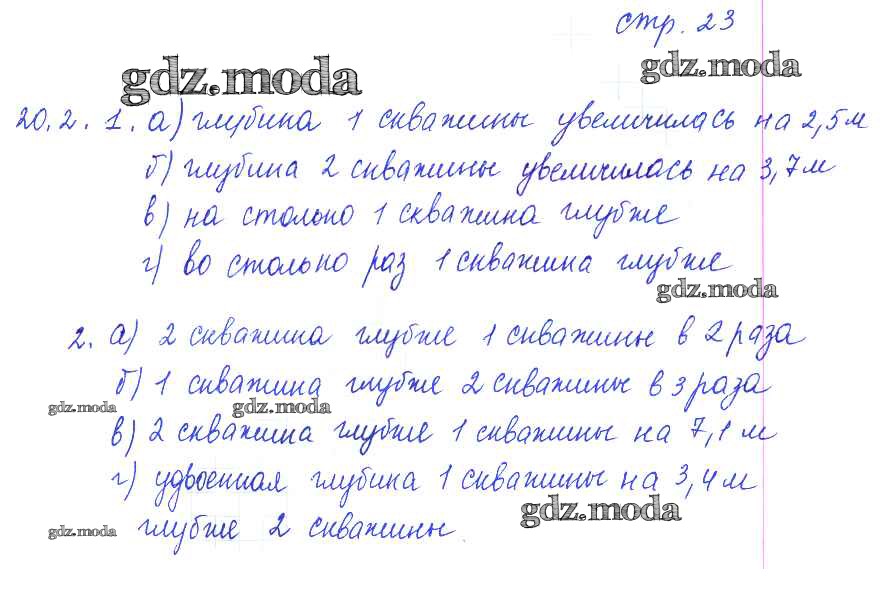 стр. 23
gdz.moda
gdz.moda
20.2. 1. а) глубина 1 скважины увеличилась на 2,5 м
б) глубина 2 скважины увеличилась на 3,7 м
в) на столько 1 скважина глубже
г) во столько раз 1 скважина глубже
gdz.moda
2. а) 2 скважина глубже 1 скважины в 2 раза
б) 1 скважина глубже 2 скважины в 3 раза
gdz.moda
gdz.moda
в) 2 скважина глубже 1 скважины на 7,1 м
г) удвоенная глубина 1 скважины на 3,4 м
gdz.moda
глубже 2 скважины
gdz.moda